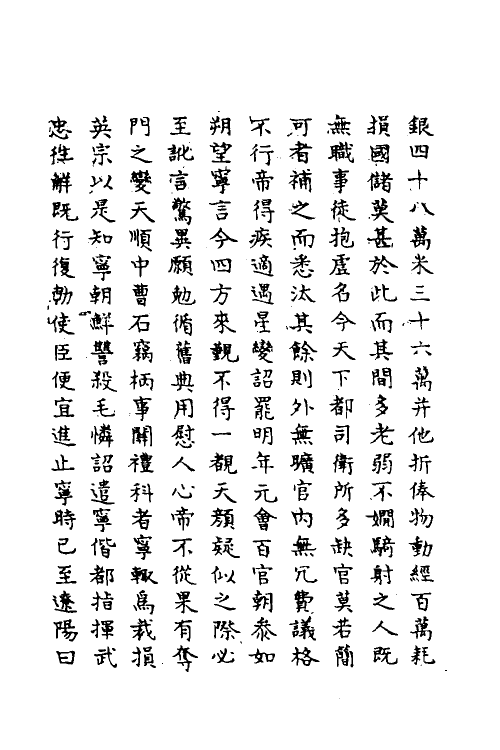 銀四十八萬米三十六萬并他折俸物動經百萬耗
損國儲莫甚於此而其間多老弱不嫺騎射之人既
無職事徒抱虛名今天下都司衛所多缺官莫若簡
可者補之而悉汰其餘則外無曠官内無冗費議格
不行帝得疾適遇星變詔罷明年元會百官朝叅如
朔望寧言今四方來覲不得一覩天顔疑似之際必
至訛言驚異願勉循舊典用慰人心帝不從果有奪
門之變天順中曹石竊柄事關禮科者寧輙爲裁損
英宗以是知寧朝鮮讐殺毛憐詔遣寧偕都指揮武
忠徃解既行復勅使臣便宜進止寧時已至遼陽曰